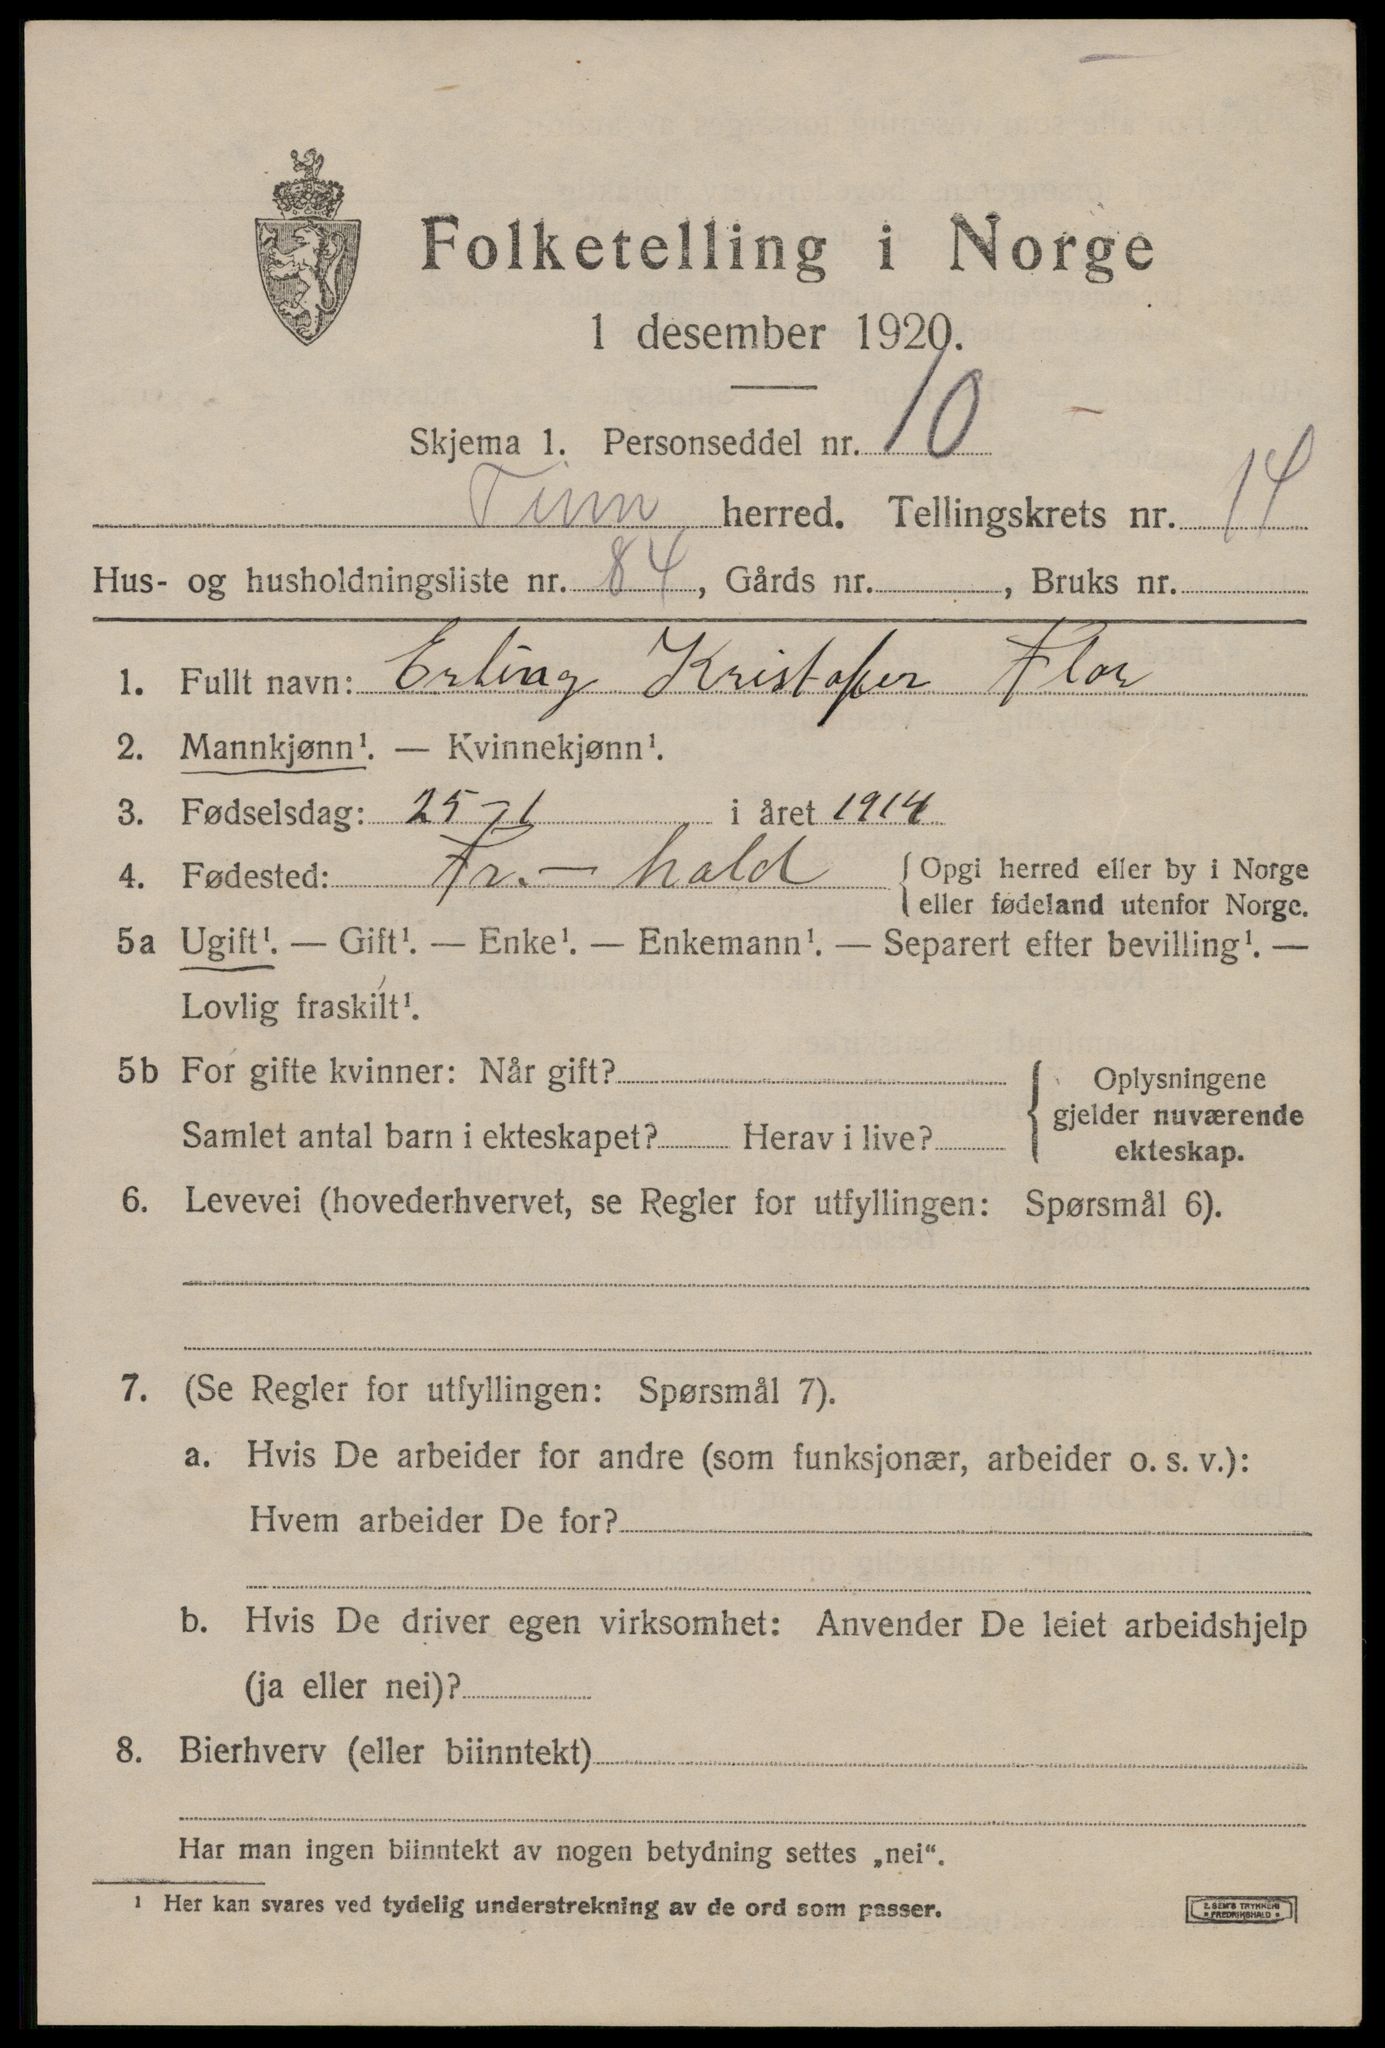 Folketelling i Norge
1 desember 1920.
Skjema 1. Personseddel nr. 10
Tinn herred. Tellingskrets nr. 14
Hus- og husholdningsliste nr. 84, Gårds nr. , Bruks nr.
1. Fullt navn: Erling Kristofer Flor
2. Mannkjønn¹. — Kvinnekjønn¹.
3. Fødselsdag: 25-1 i året 1914
4. Fødested: Fr.- hald { Opgi herred eller by i Norge
eller fødeland utenfor Norge.
5a Ugift¹. — Gift¹. — Enke¹. — Enkemann¹. — Separert efter bevilling¹. —
Lovlig fraskilt¹.
5b For gifte kvinner: Når gift? { Oplysningene
gjelder nuværende
Samlet antal barn i ekteskapet? Herav i live? ekteskap.
6. Levevei (hovederhvervet, se Regler for utfyllingen: Spørsmål 6).
7. (Se Regler for utfyllingen: Spørsmål 7).
a. Hvis De arbeider for andre (som funksjonær, arbeider o. s. v.):
Hvem arbeider De for?
b. Hvis De driver egen virksomhet: Anvender De leiet arbeidshjelp
(ja eller nei)?
8. Bierhverv (eller biinntekt)
Har man ingen biinntekt av nogen betydning settes „nei“.
¹ Her kan svares ved tydelig understrekning av de ord som passer.
E. SEM'S TRYKKERI
FREDRIKSHALD